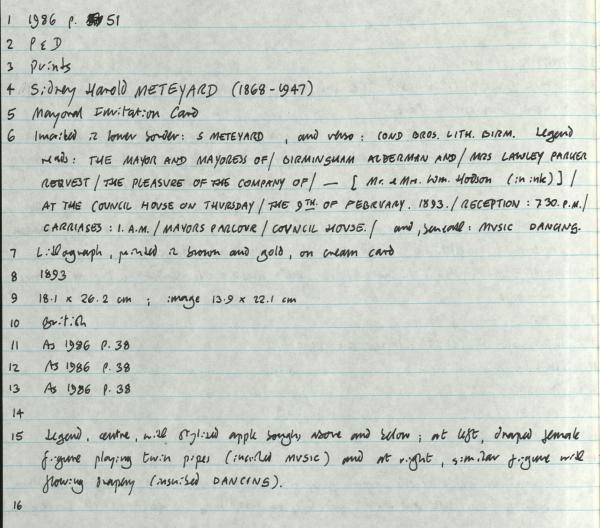 1 1986 P. 51
2 P & D
3 Prints
4 Sidney Harold METEYARD (1868-1947)
5 Mayoral Invitation Card
6 Inscribed in lower border: S METEYARD , and verso: COND BROS. LITH. BIRM. Legend
reads: THE MAYOR AND MAYORESS OF / BIRMINGHAM ALDERMAN AND / MRS LAWLEY PARKER
REQUEST / THE PLEASURE OF THE COMPANY OF / — [ Mr. & Mrs. Wm. Hobson (in ink) ] /
AT THE COUNCIL HOUSE ON THURSDAY / THE 9TH. OF FEBRUARY. 1893. / RECEPTION : 7.30. P.M. /
CARRIAGES : 1. A.M. / MAYORS PARLOUR / COUNCIL HOUSE. / and, : MUSIC DANCING.
7 Lithograph, printed in brown and gold, on cream card
8 1893
9 18.1 x 26.2 cm ; image 13.9 x 22.1 cm
10 British
11 As 1986 P. 38
12 As 1986 P. 38
13 As 1986 P. 38
14
15 Legend, centre, with stylized apple boughs above and below ; at left, draped female
figure playing twin pipes (inscribed MUSIC) and at right, similar figure with
flowing drapery (inscribed DANCING).
16